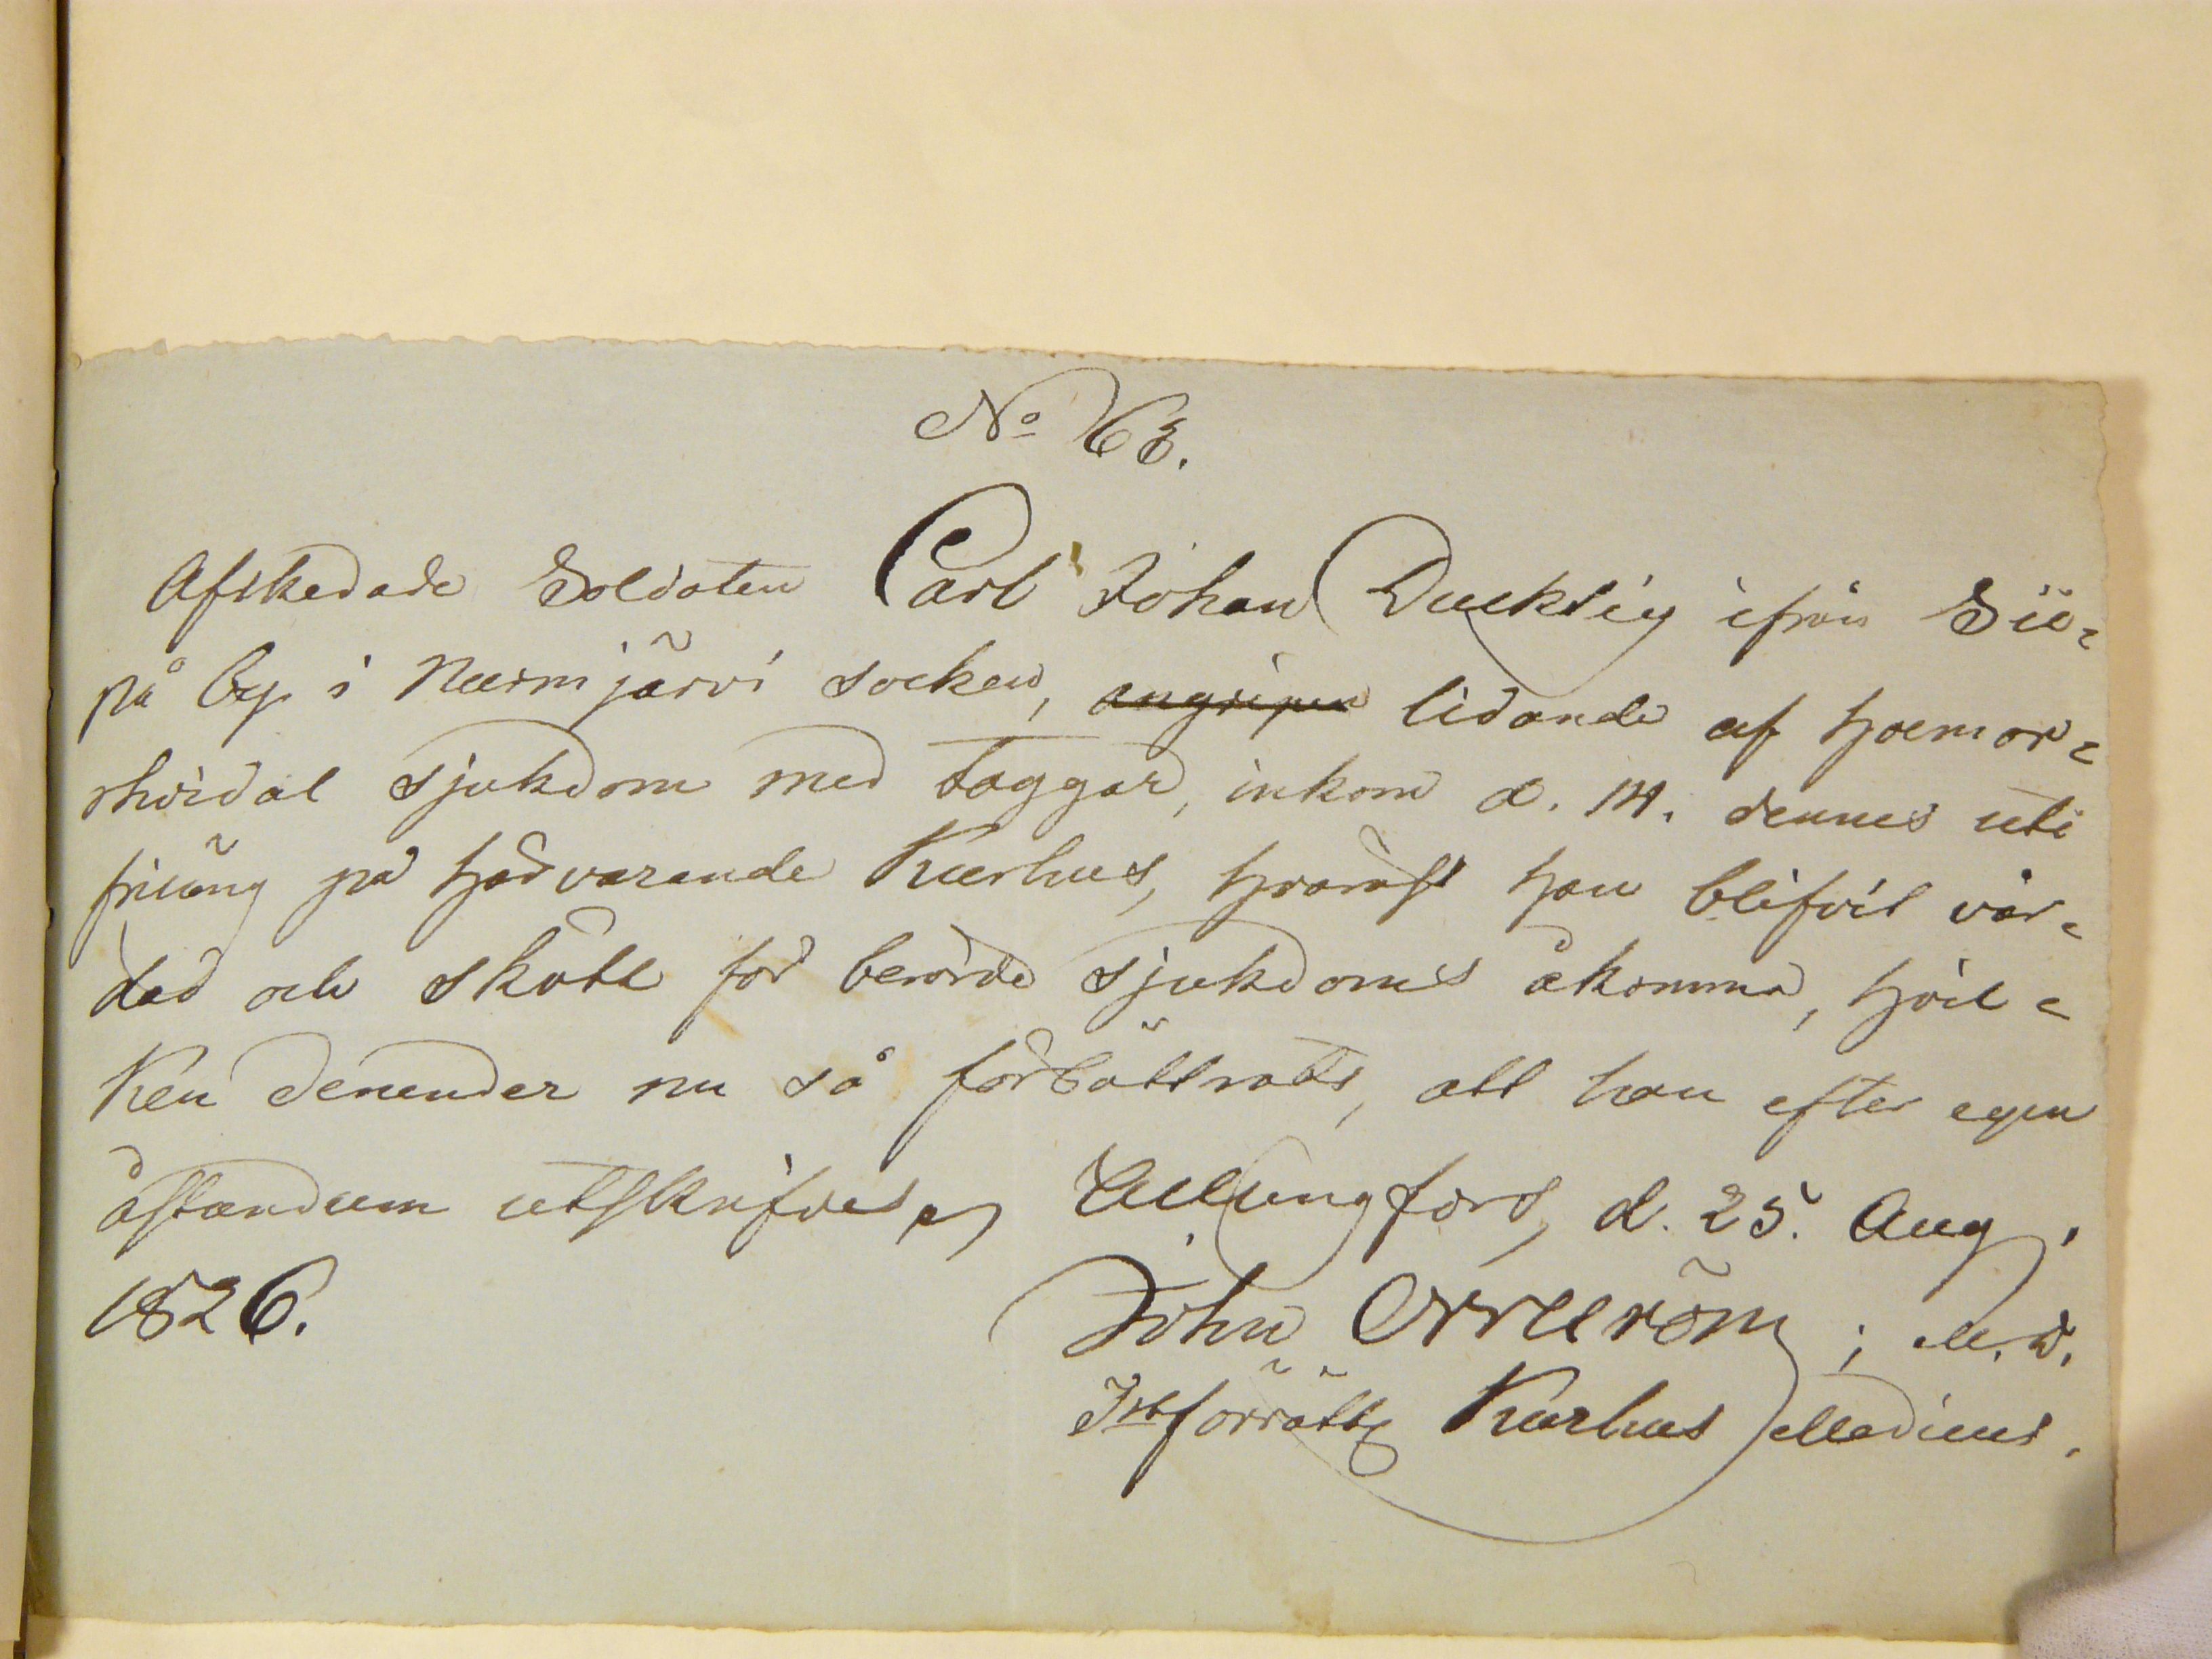 No 63.
Afskedade Soldaten Carl Johan Ducktig ifrån Siö=
på by i Nurmijärvi socken, angripen lidande af hoemor=
rhoidal sjukdom med taggar, inkom d. 14. dennes uti
friäng på härvarande Kurhus, hvaräst han blifvit vår=
dad och skött för berörde sjukdoms åkomma, hvil=
ken denender nu så förbättrats, att han efter egen
åstundum utskrifves,
Helsingfors, d. 25. Aug.
1826.
John Orrström; M. D.
Kurhus Medicus.